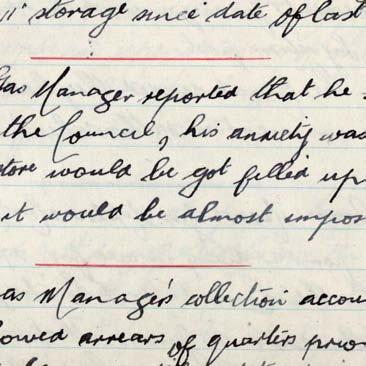 storage since date of last
Gas Manager reported that he
the Council, his anxiety was
store would be got filled up
it would be almost impos
as Manager's collection accou
owed arrears of quarters prior